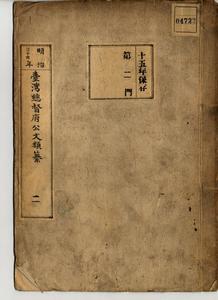 04722
十五年保存
第二門
明治
年
臺灣總督府公文類纂
二